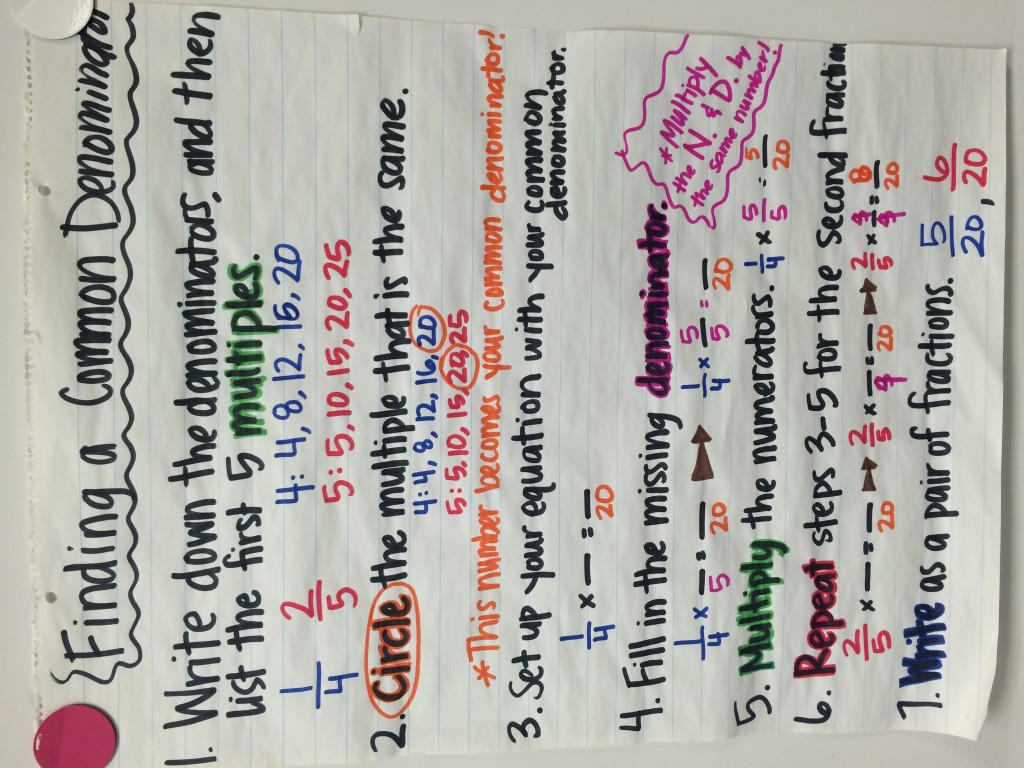 Finding a Common Denominator
1. Write down the denominators, and then
list the first 5 multiples.
1/4 2/5 4: 4, 8, 12, 16, 20
5: 5, 10, 15, 20, 25
2. Circle the multiple that is the same.
4: 4, 8, 12, 16, 20
5: 5, 10, 15, 20, 25
*This number becomes your common denominator!
3. Set up your equation with your common
denominator.
1/4 x — = —/20
4. Fill in the missing denominator.
1/4 x —/5 = —/20 1/4 x 5/5 = —/20
*Multiply
the N. & D. by
the same number!
5. Multiply the numerators. 1/4 x 5/5 = 5/20
6. Repeat steps 3-5 for the second fraction
2/5 x — = —/20 2/5 x —/4 = —/20 2/5 x 4/4 = 8/20
7. Write as a pair of fractions. 5/20, 6/20